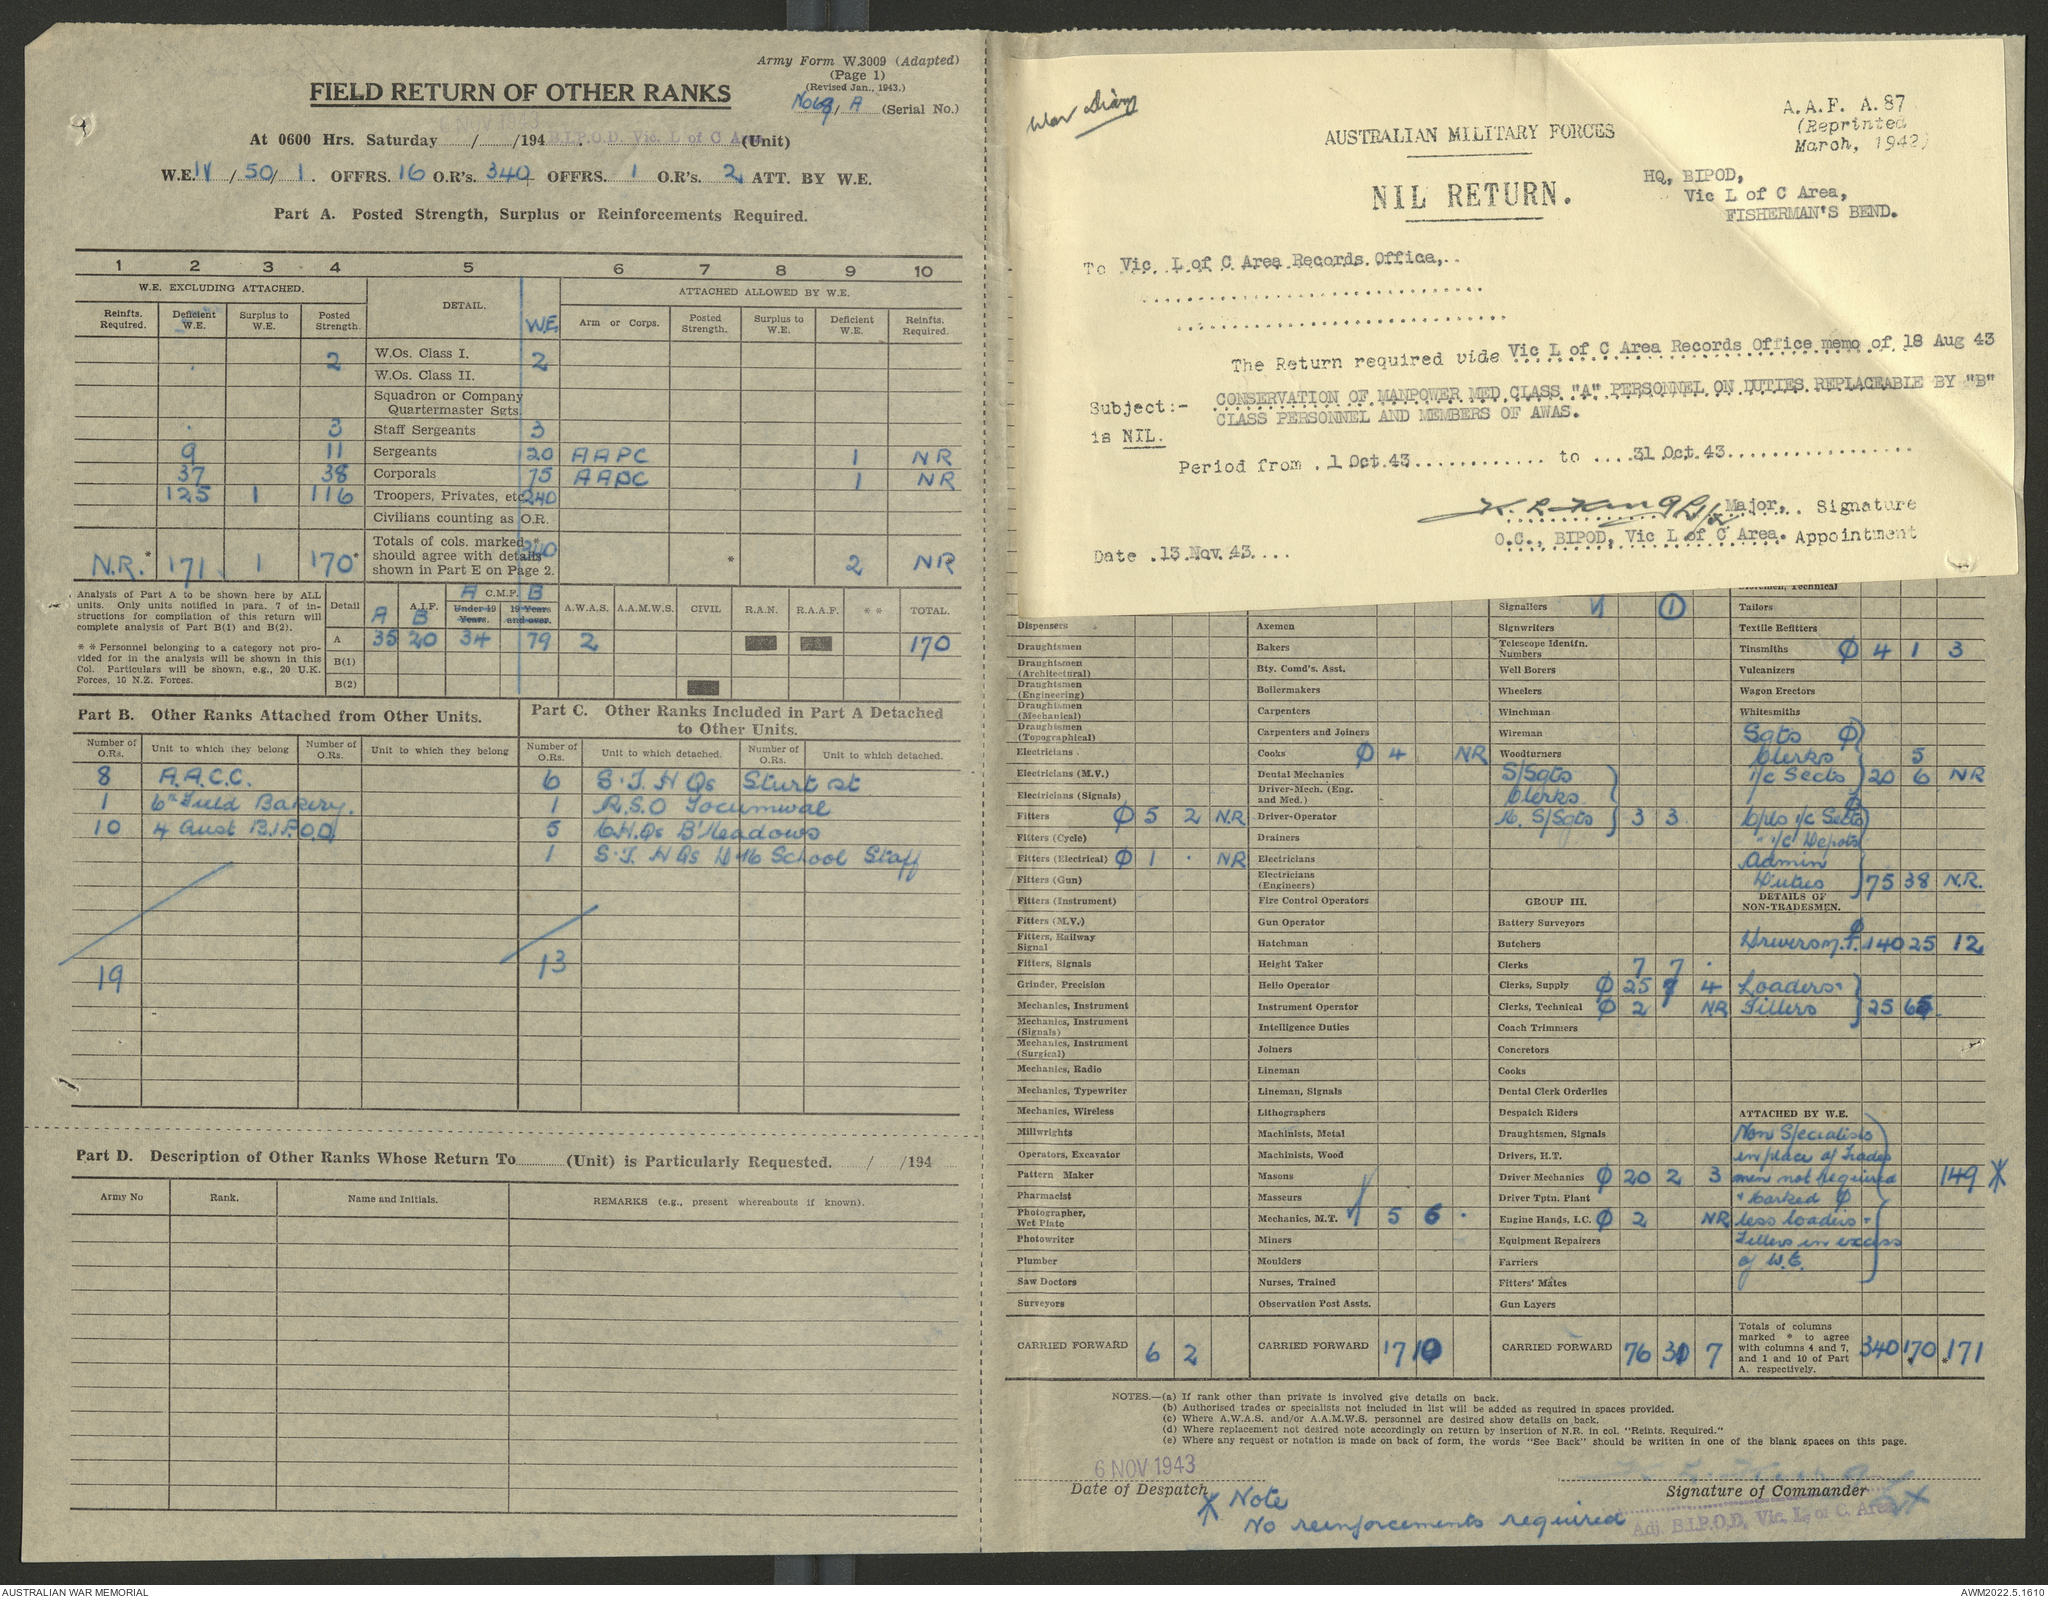 Army Form W.3009 (Adapted)
(Page 1)
(Revised Jan., 1943.)
FIELD RETURN OF OTHER RANKS
A (Serial No.)
At 0600 Hrs. Saturday ...../....../194 B.I.P.O.D. Vic. L of C A (Unit)
W.E. IV / 50 / 1. OFFRS. 16 O.R's. 340 OFFRS. 1 O.R's. 2 ATT. BY W.E.
Part A. Posted Strength, Surplus or Reinforcements Required.
1 2 3 4 5 6 7 8 9 10
W.E. EXCLUDING ATTACHED. DETAIL. W.E. ATTACHED ALLOWED BY W.E.
Reinfts. Required. Deficient W.E. Surplus to W.E. Posted Strength. Arm or Corps. Posted Strength. Surplus to W.E. Deficient W.E. Reinfts. Required.
2 W.Os. Class I. 2
W.Os. Class II.
Squadron or Company Quartermaster Sgts.
3 Staff Sergeants 3
9 11 Sergeants 20 AAPC 1 NR
37 38 Corporals 75 AAPC 1 NR
125 1 116 Troopers, Privates, etc. 240
Civilians counting as O.R.
N.R.* 171 1 170* Totals of cols. marked * should agree with details shown in Part E on Page 2. 340 * 2 NR
Analysis of Part A to be shown here by ALL units. Only units notified in para. 7 of instructions for compilation of this return will complete analysis of Part B(1) and B(2).
* * Personnel belonging to a category not provided for in the analysis will be shown in this Col. Particulars will be shown, e.g., 20 U.K. Forces, 10 N.Z. Forces.
Detail A A.I.F. B A C.M.F. B Under 19 Years. 19 Years and over. A.W.A.S. A.A.M.W.S. CIVIL R.A.N. R.A.A.F. * * TOTAL.
A 35 20 34 79 2 170
B(1)
B(2)
Part B. Other Ranks Attached from Other Units.
Number of O.Rs. Unit to which they belong Number of O.Rs. Unit to which they belong
8 A.A.C.C.
1 6th Field Bakery.
10 4 Aust B.I.P.O.D
19
Part C. Other Ranks Included in Part A Detached to Other Units.
Number of O.Rs. Unit to which detached. Number of O.Rs. Unit to which detached.
6 S.T. H Qs Sturt st
1 R.S.O Tocumwal
5 C.H.Qs B'Meadows
1 S.T. H Qs School Staff
13
Part D. Description of Other Ranks Whose Return To............(Unit) is Particularly Requested. ...../ ...../194
Army No Rank. Name and Initials. REMARKS (e.g., present whereabouts if known).
War Diary
A.A.F. A.87
(Reprinted
March, 1942)
AUSTRALIAN MILITARY FORCES
NIL RETURN.
HQ, BIPOD,
Vic L of C Area,
FISHERMAN'S BEND.
To Vic L of C Area Records Office,
The Return required vide Vic L of C Area Records Office memo of 18 Aug 43
Subject:- CONSERVATION OF MANPOWER MED CLASS "A" PERSONNEL ON DUTIES REPLACEABLE BY "B"
CLASS PERSONNEL AND MEMBERS OF AWAS.
is NIL.
Period from 1 Oct 43 to 31 Oct 43
Major, Signature
O.C., BIPOD, Vic L of C Area. Appointment
Date 13 Nov 43
Dispensers
Draughtsmen
Draughtsmen (Architectural)
Draughtsmen (Engineering)
Draughtsmen (Mechanical)
Draughtsmen (Topographical)
Electricians
Electricians (M.V.)
Electricians (Signals)
Fitters Ø 5 2 N.R
Fitters (Cycle)
Fitters (Electrical) Ø 1 . NR
Fitters (Gun)
Fitters (Instrument)
Fitters (M.V.)
Fitters, Railway Signal
Fitters, Signals
Grinder, Precision
Mechanics, Instrument
Mechanics, Instrument (Signals)
Mechanics, Instrument (Surgical)
Mechanics, Radio
Mechanics, Typewriter
Mechanics, Wireless
Millwrights
Operators, Excavator
Pattern Maker
Pharmacist
Photographer, Wet Plate
Photowriter
Plumber
Saw Doctors
Surveyors
CARRIED FORWARD 6 2
Axemen
Bakers
Bty. Comd's. Asst.
Boilermakers
Carpenters
Carpenters and Joiners
Cooks Ø 4 NR
Dental Mechanics
Driver-Mech. (Eng. and Med.)
Driver-Operator
Drainers
Electricians
Electricians (Engineers)
Fire Control Operators
Gun Operator
Hatchman
Height Taker
Helio Operator
Instrument Operator
Intelligence Duties
Joiners
Lineman
Lineman, Signals
Lithographers
Machinists, Metal
Machinists, Wood
Masons
Masseurs
Mechanics, M.T. 5 6 .
Miners
Moulders
Nurses, Trained
Observation Post Assts.
CARRIED FORWARD 17
Signallers 1
Signwriters
Telescope Identfn. Numbers
Well Borers
Wheelers
Winchman
Wireman
Woodturners
S/Sgts
Clerks
S/Sgts 3 3
GROUP III.
Battery Surveyors
Butchers
Clerks 7 7 .
Clerks, Supply Ø 25 7 4
Clerks, Technical Ø 2 NR
Coach Trimmers
Concretors
Cooks
Dental Clerk Orderlies
Despatch Riders
Draughtsmen, Signals
Drivers, H.T.
Driver Mechanics Ø 20 2 3
Driver Tptn. Plant
Engine Hands, I.C. Ø 2 NR
Equipment Repairers
Farriers
Fitters' Mates
Gun Layers
CARRIED FORWARD 76 7
Storemen, Technical
Tailors
Textile Refitters
Tinsmiths Ø 4 1 3
Vulcanizers
Wagon Erectors
Whitesmiths
Sgts Ø
Clerks 5
i/c Sects 20 6 NR
Cpls i/c Sects
" i/c Depots
Admin
Duties 75 38 N.R.
DETAILS OF NON-TRADESMEN.
Drivers M.T. 140 25 12
Loaders
Fillers 25
ATTACHED BY W.E.
Non Specialists
in place of Trades
men not required 149 *
+ barked Ø
less loaders -
Fillers in excess
of W.E.
Totals of columns marked * to agree with columns 4 and 7, and 1 and 10 of Part A. respectively. 340 170 * * 171
NOTES.—(a) If rank other than private is involved give details on back.
(b) Authorised trades or specialists not included in list will be added as required in spaces provided.
(c) Where A.W.A.S. and/or A.A.M.W.S. personnel are desired show details on back.
(d) Where replacement not desired note accordingly on return by insertion of N.R. in col. "Reints. Required."
(e) Where any request or notation is made on back of form, the words "See Back" should be written in one of the blank spaces on this page.
6 NOV 1943
Date of Despatch
Signature of Commander
Adj. B.I.P.O.D, Vic. L. of C. Area
* Note
No reinforcements required
AUSTRALIAN WAR MEMORIAL
AWM2022.5.1610